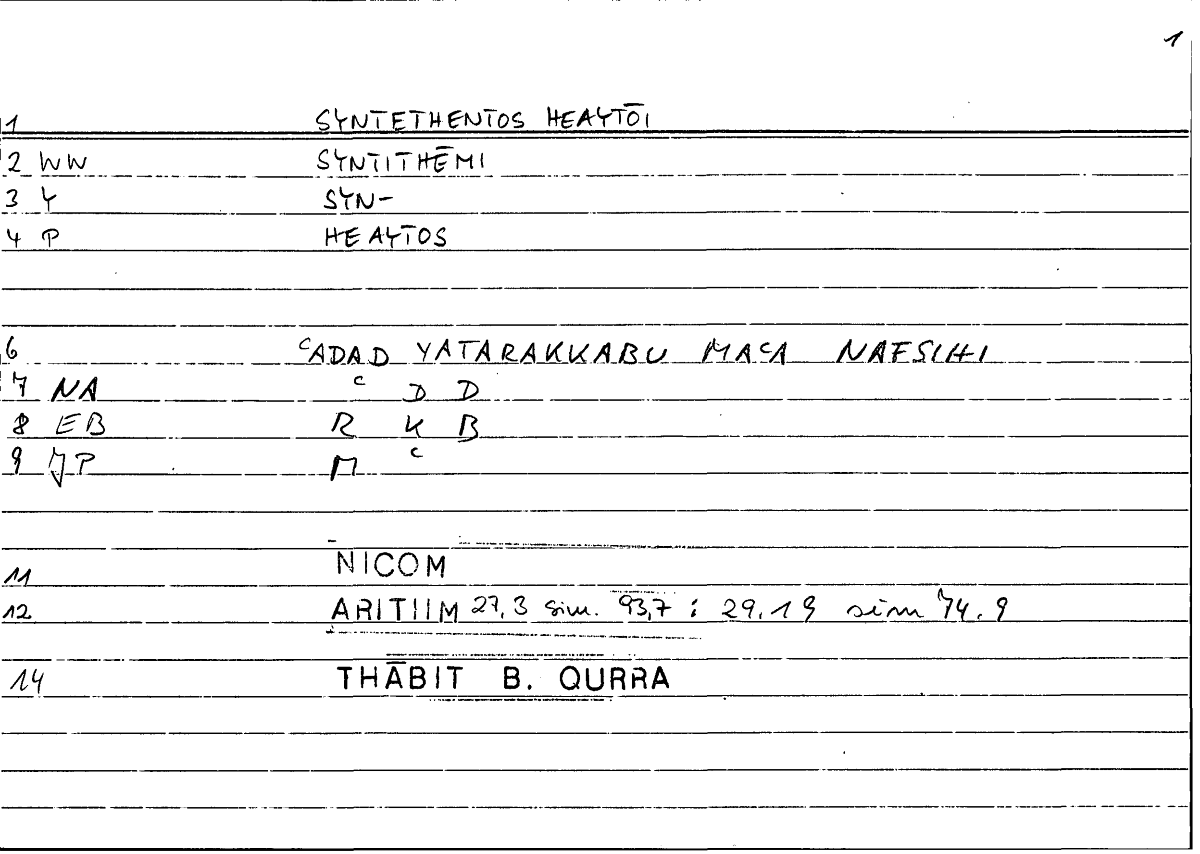 1
1 SYNTETHENTOS HEAYTŌI
2 WW SYNTITHĒMI
3 Y SYN-
4 P HEAYTOS
6 ᶜADAD YATARAKKABU MAᶜA NAFSIHI
7 NA ᶜ D D
8 EB R K B
9 JP M ᶜ
11 NICOM
12 ARITIIM 27,3 sim. 93,7 ; 29.19 sim 74.9
14 THĀBIT B. QURRA